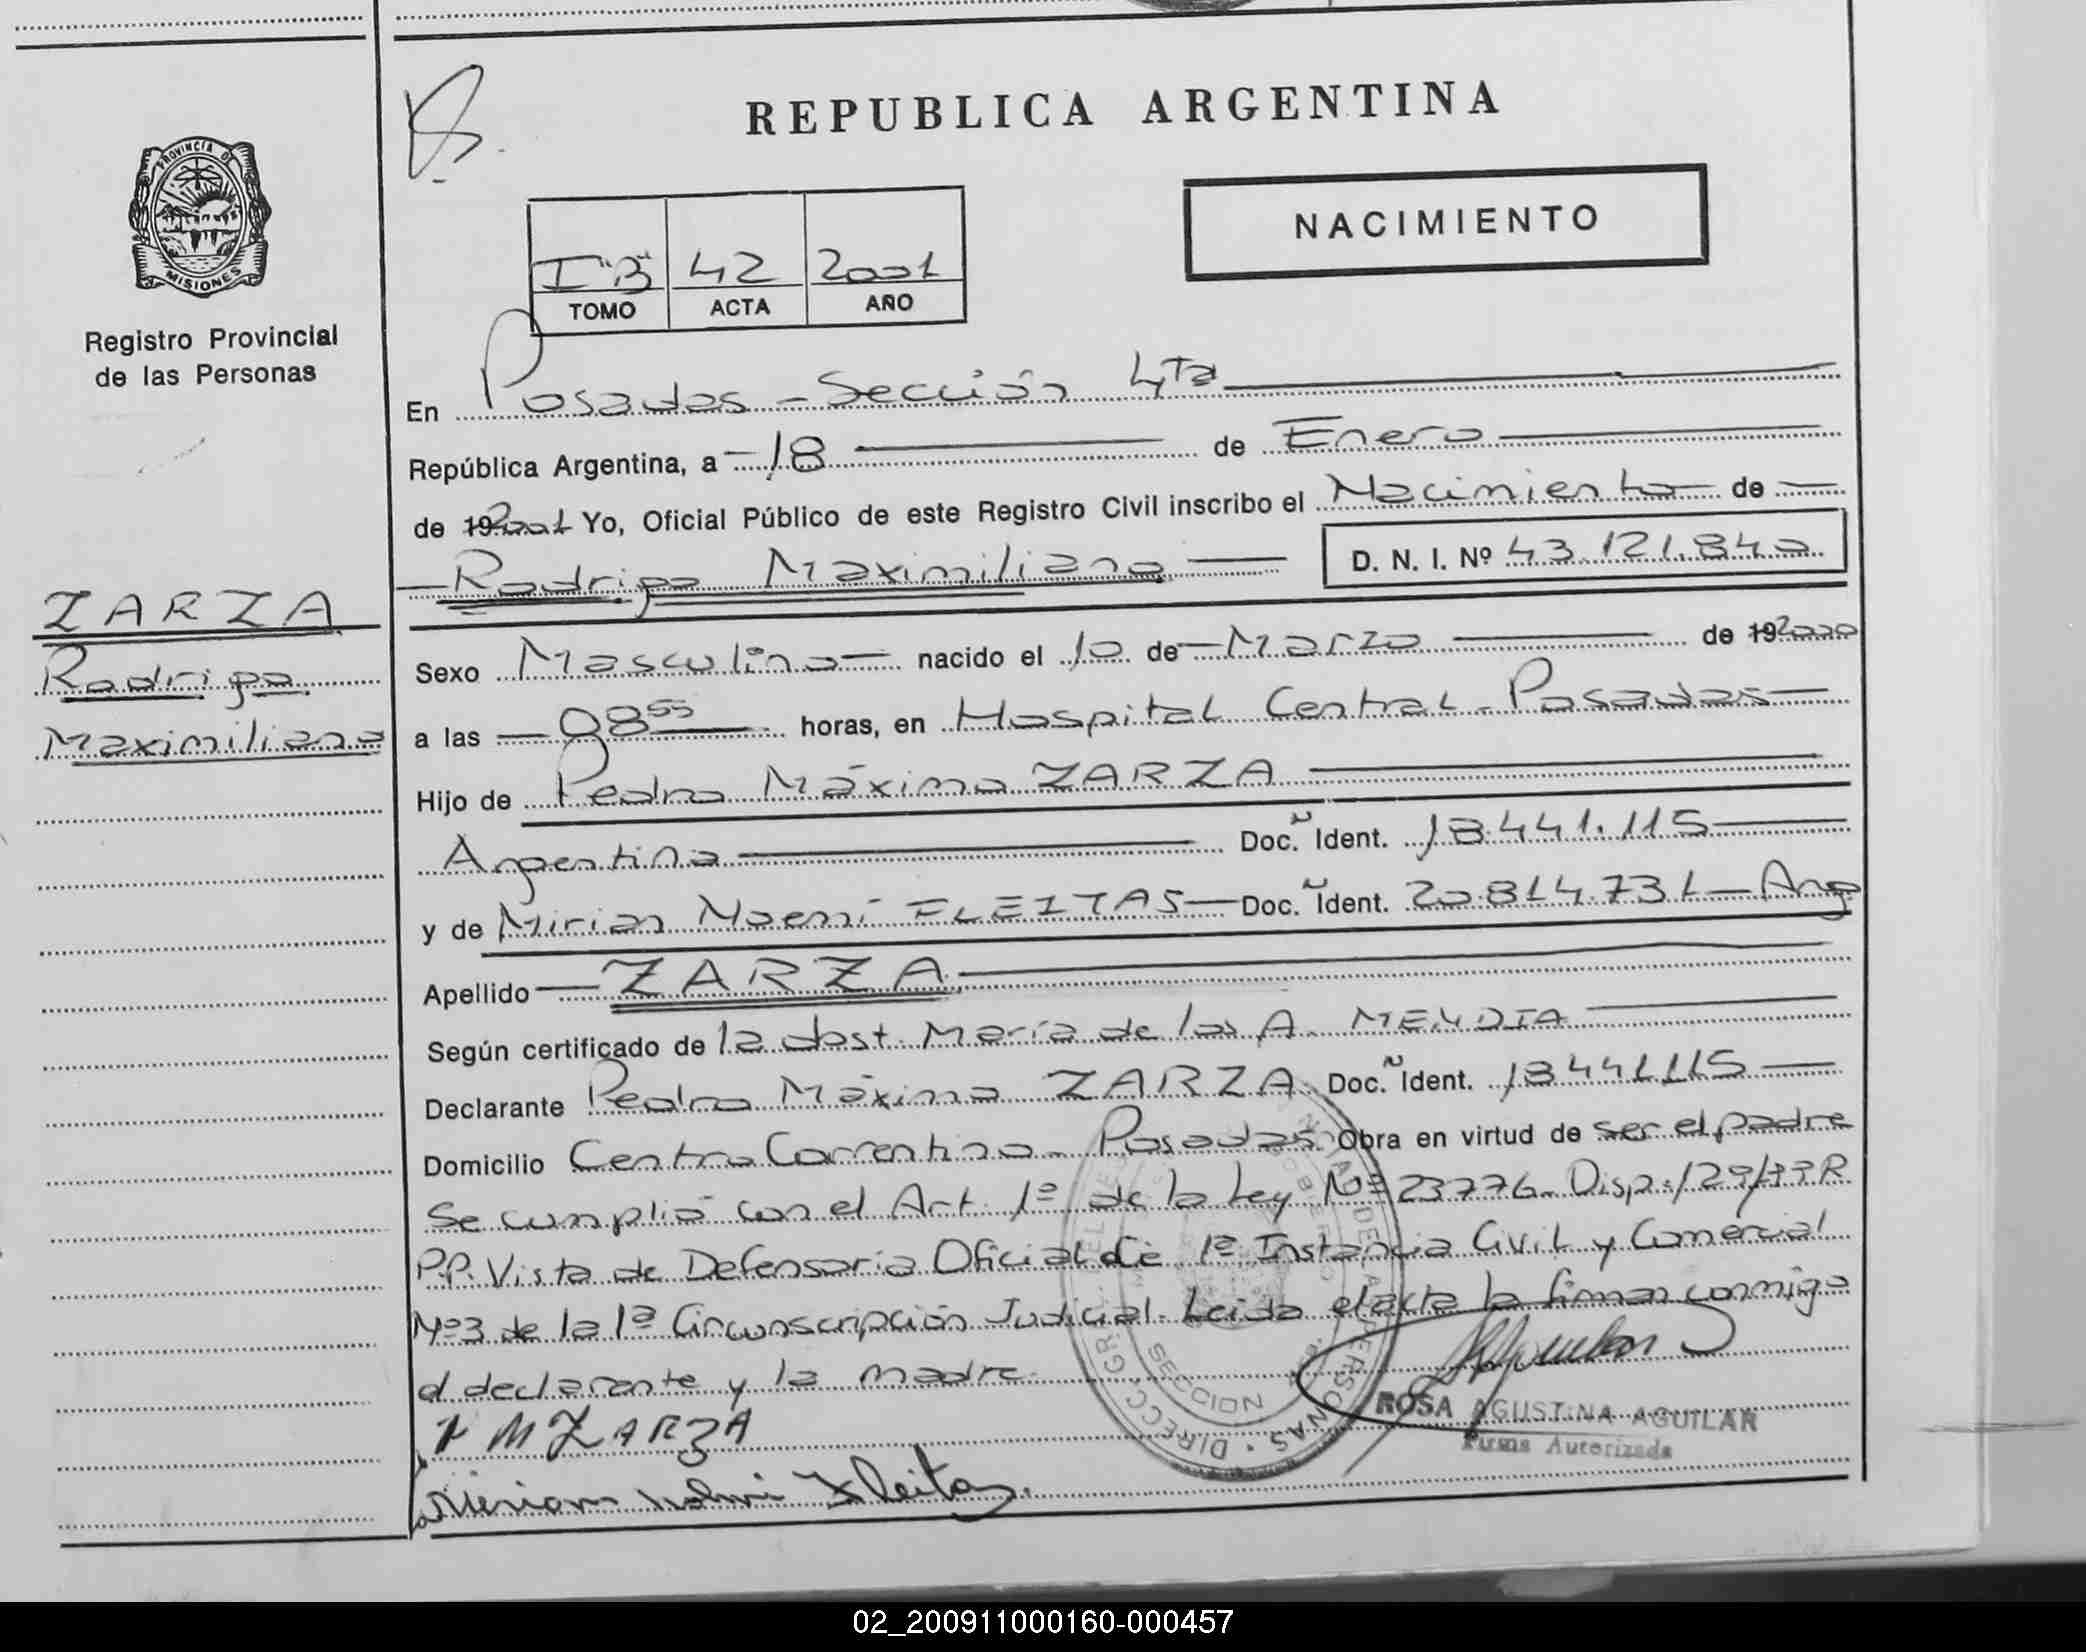 REPUBLICA ARGENTINA
PROVINCIA DE
MISIONES
Registro Provincial
de las Personas
NACIMIENTO
I "B" 42 2001
TOMO ACTA AÑO
En Posadas - Sección 4ta
República Argentina, a 18 de Enero
de 192001 Yo, Oficial Público de este Registro Civil inscribo el Nacimiento de
Rodrigo Maximiliano D. N. I. Nº 43.121.840
ZARZA
Rodrigo
Maximiliano
Sexo Masculino nacido el 10 de Marzo de 192000
a las 08 55 horas, en Hospital Central - Posadas
Hijo de Pedro Máximo ZARZA
Argentina Doc. Ñ Ident. 18.441.115
y de Mirian Noemí FLEITAS Doc. Ñ Ident. 20.814.731 - Arg
Apellido ZARZA
Según certificado de la obst. María de los A. MENDIA
Declarante Pedro Máximo ZARZA Doc. Ñ Ident. 18441115
Domicilio Centro Correntino - Posadas Obra en virtud de ser el padre
Se cumplió con el Art. 1º de la Ley Nº 23776 - Disp.
P.P. Vista de Defensoria Oficial de 1ª Instancia Civil y Comercial
Nº3 de la 1ª Circunscripción Judicial. Leida el acta la firman conmigo
el declarante y la madre.
P M ZARZA
ROSA AGUSTINA AGUILAR
Firma Autorizada
Fleitas
SECCION
02_200911000160-000457